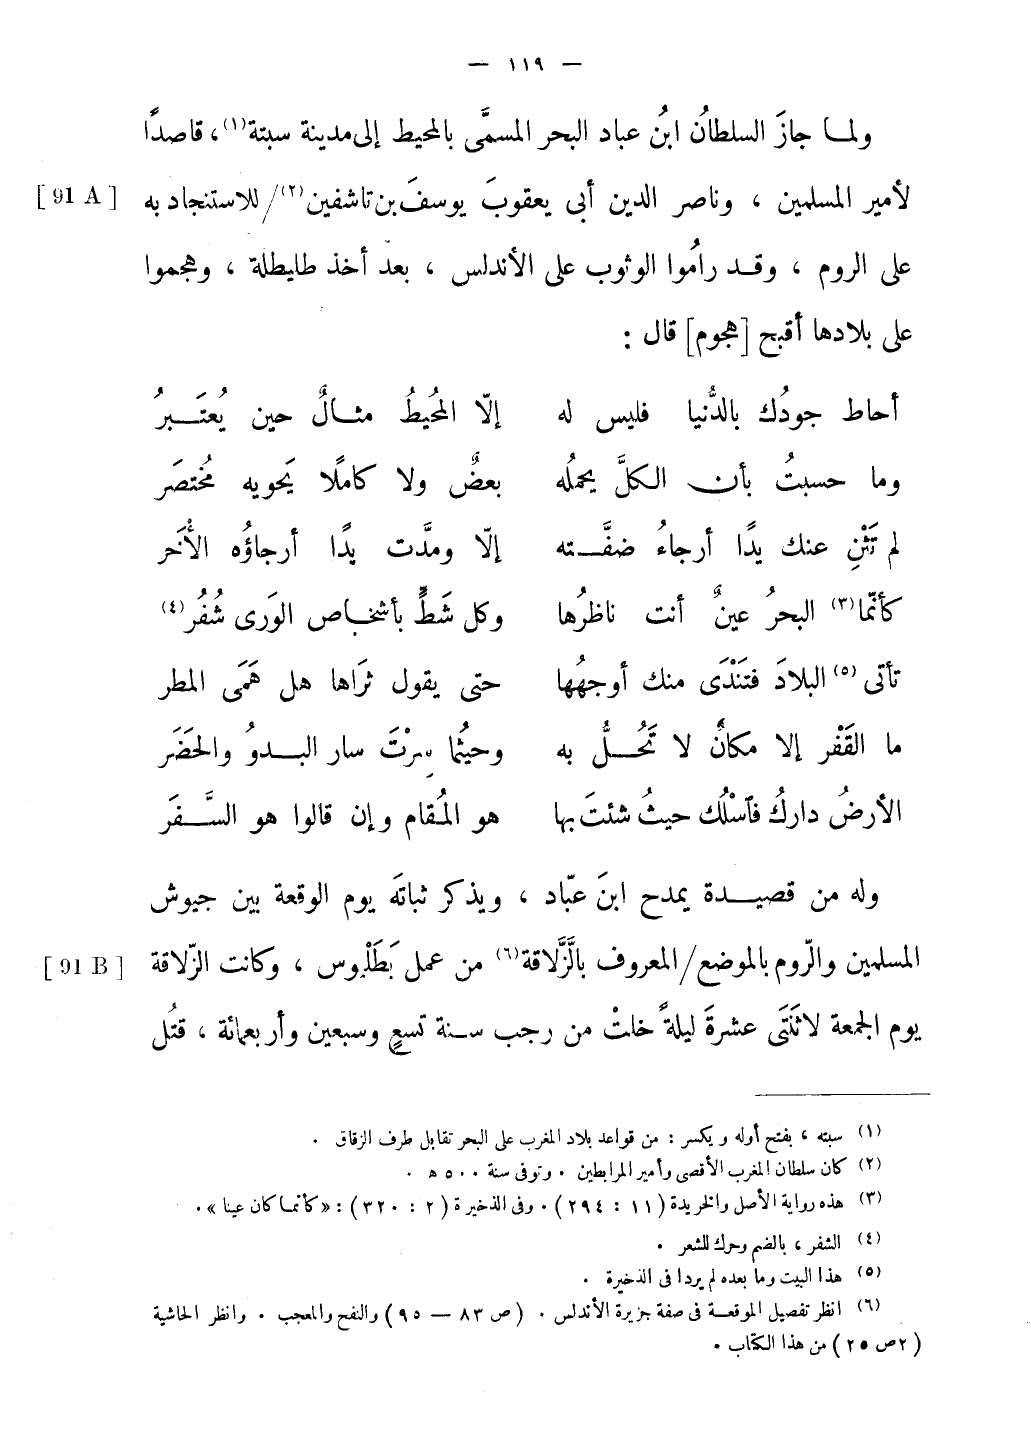 — ١١٩ —
ولمــا جازَ السلطانُ ابنُ عباد البحر المسمَّى بالمحيط إلى مدينة سبتة(١)، قاصدًا
لأمير المسلمين ، وناصر الدين أبى يعقوبَ يوسفَ بن تاشفين(٢)/ للاستنجاد به [91 A]
على الروم ، وقــد رامُوا الوثوب على الأندلس ، بعد أخذ طليطلة ، وهجموا
على بلادها أقبح [هجوم] قال :
أحاط جودُك بالدُّنيا فليس له إلّا المحُيطُ مثــالٌ حين يُعتَــبرُ
وما حسبتُ بأن الكلَّ يحملُه بعضٌ ولا كاملًا يَحويه مُختصَر
لم تَثْنِ عنك يدًا أرجاءُ ضفَّــته إلّا ومدَّت يدًا أرجاؤُه الأُخَر
كأنّما(٣) البحرُ عينٌ أنت ناظرُها وكل شَطٍّ بأشخــاص الوَرى شُفُر(٤)
تأتى(٥) البلادَ فتَنْدَى منك أوجهُها حتى يقول ثرَاها هل هَمَى المطر
ما القَفْر إلا مكانٌ لا تَحُــلُّ به وحيثُما سِرْتَ سار البــدوُ والحَضَر
الأرضُ دارك فٱسْلُك حيثُ شئتَ بها هو المُقام وإن قالوا هو السَّــفَر
وله من قصيــدة يمدح ابنَ عبّاد ، ويذكر ثباتَه يوم الوقعة بين جيوش
المسلمين والرّوم بالموضع/ المعروف بالزَّلاقة(٦) من عمل بَطَلْيوس ، وكانت الزّلاقة [91 B]
يوم الجمعة لاثنَتَى عشرةَ ليلةً خلتْ من رجب سـنة تسعٍ وسبعين وأربعمائة ، قتُل
(١) سبته ، بفتح أوله ويكسر : من قواعد بلاد المغرب على البحر تقابل طرف الزقاق .
(٢) كان سلطان المغرب الأقصى وأمير المرابطين . وتوفى سنة ٥٠٠ ه .
(٣) هذه رواية الأصل والخريدة (١١ : ٢٩٤) . وفى الذخيرة (٢ : ٣٢٠) : «كأنمـا كان عينا» .
(٤) الشفر ، بالضم وحرك للشعر .
(٥) هذا البيت وما بعده لم يردا فى الذخيرة .
(٦) انظر تفصيل الموقعــة فى صفة جزيرة الأندلس . (ص ٨٣ — ٩٥) والنفح والمعجب . وانظر الحاشية
(٢ ص ٢٥) من هذا الكتاب .